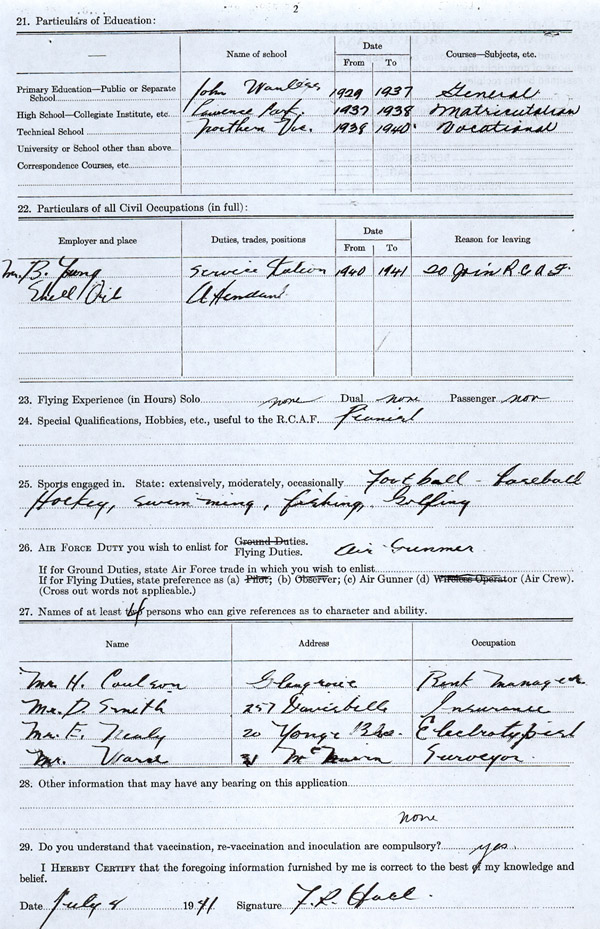 2
21. Particulars of Education:
Name of school
Date
From To
Courses—Subjects, etc.
Primary Education—Public or Separate School John Wanless 1929 1937 General
High School—Collegiate Institute, etc. Lawrence Park. 1937 1938 Matriculation
Technical School Northern Voc. 1938 1940 Vocational
University or School other than above
Correspondence Courses, etc.
22. Particulars of all Civil Occupations (in full):
Employer and place
Duties, trades, positions
Date
From To
Reason for leaving
Mr. B. Young Service Station 1940 1941 To Join R.C.A.F.
Shell Oil Attendant
23. Flying Experience (in Hours) Solo none Dual none Passenger non
24. Special Qualifications, Hobbies, etc., useful to the R.C.A.F. Pianist
25. Sports engaged in. State: extensively, moderately, occasionally Football - baseball
Hockey, swimming, fishing, Golfing
26. Air Force Duty you wish to enlist for Ground Duties. Flying Duties. Air Gunner
If for Ground Duties, state Air Force trade in which you wish to enlist
If for Flying Duties, state preference as (a) Pilot; (b) Observer; (c) Air Gunner (d) Wireless Operator (Air Crew).
(Cross out words not applicable.)
27. Names of at least persons who can give references as to character and ability.
Name Address Occupation
Mr. H. Coulson Glengrove Bank Manager
Mr. D. Smith 257 Davisville Insurance
Mr. E. Nealy 20 Yonge Blvd. Electrotypist
Mr. Surveyor
28. Other information that may have any bearing on this application
none
29. Do you understand that vaccination, re-vaccination and inoculation are compulsory? yes
I Hereby Certify that the foregoing information furnished by me is correct to the best of my knowledge and
belief.
Date July 8 1941 Signature F.R. Hall.